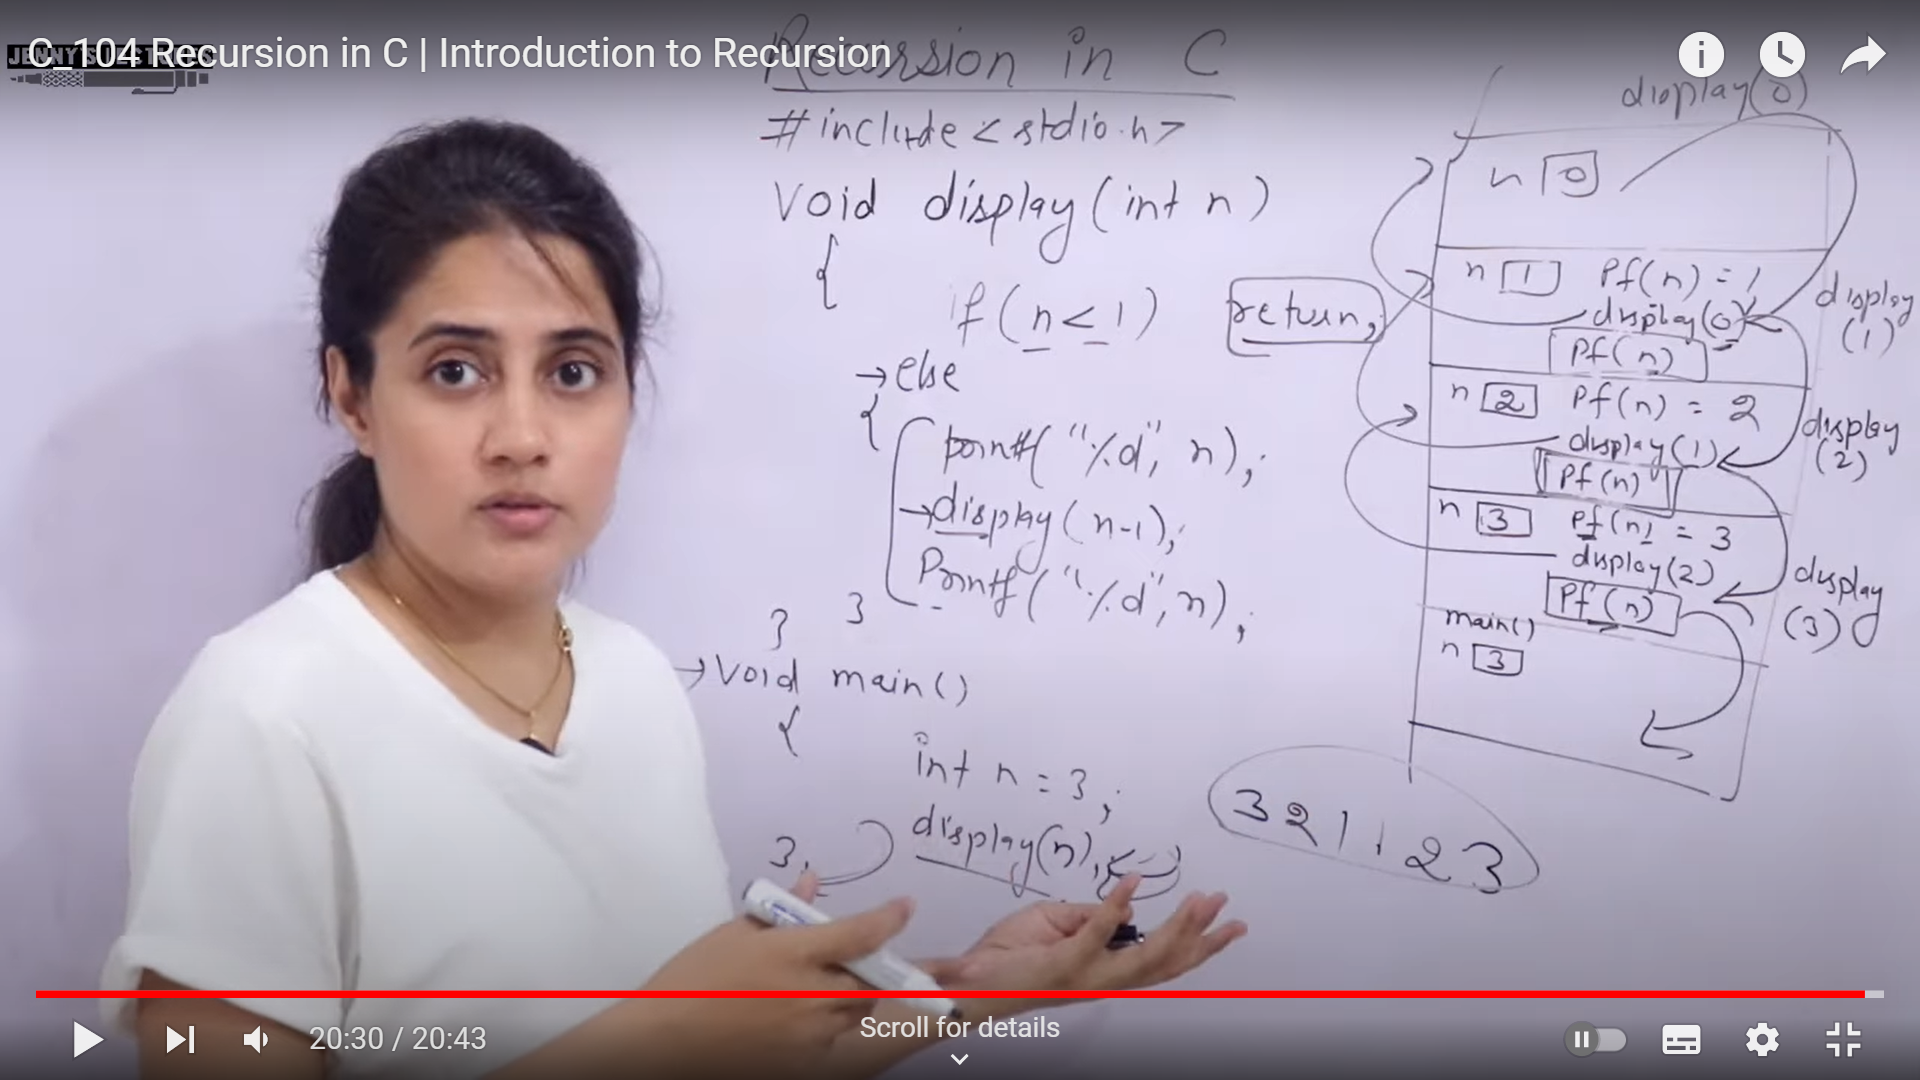 C_104 Recursion in C | Introduction to Recursion
Recursion in C
#include <stdio.h>
void display(int n)
{
if(n<1) return;
→ else
{
printf("%d", n);
→ display(n-1);
Printf("%d", n);
}
}
→ void main()
{
int n = 3;
display(n);
}
display(0)
n 0
n 1 Pf(n) = 1
display(0)
Pf(n)
display
(1)
n 2 Pf(n) = 2
display(1)
Pf(n)
display
(2)
n 3 Pf(n) = 3
display(2)
Pf(n)
display
(3)
main()
n 3
3 2 1 1 2 3
20:30 / 20:43
Scroll for details